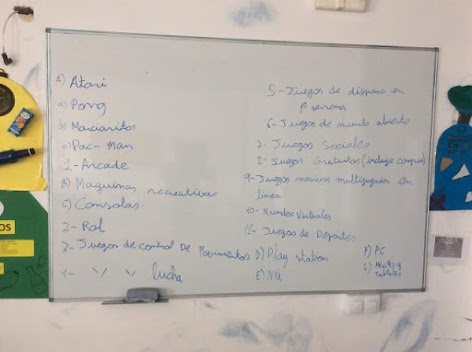 a) Atari
a) Pong
b) Marcianitos
c) Pac-Man
1-Arcade
B) Maquinas recreativas
C) Consolas
2- Rol
3- Juegos de control De Movimientos
4- " " lucha
5- Juegos de disparo en
Persona
6- Juegos de mundo abierto
7- Juegos Sociales
8- Juegos Gratuitos (incluye compras)
9- Juegos masivos multijugador en
linea
10- Mundos Virtuales
12- Juegos de Deportes
D) Play station
E) Wii
F) PC
G) Móviles y
tabletas
OS